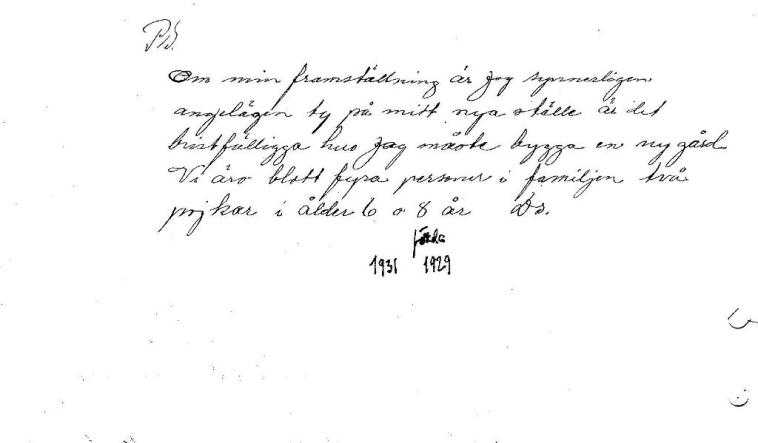 P.S.
Om min framställning är jag synnerligen
angelägen ty på mitt nya ställe är det
bristfälligga hus Jag måste bygga en ny gård
Vi äro blott fyra personer i familjen två
pojkar i ålder 6 o 8 år Ds.
födda
1931 1929